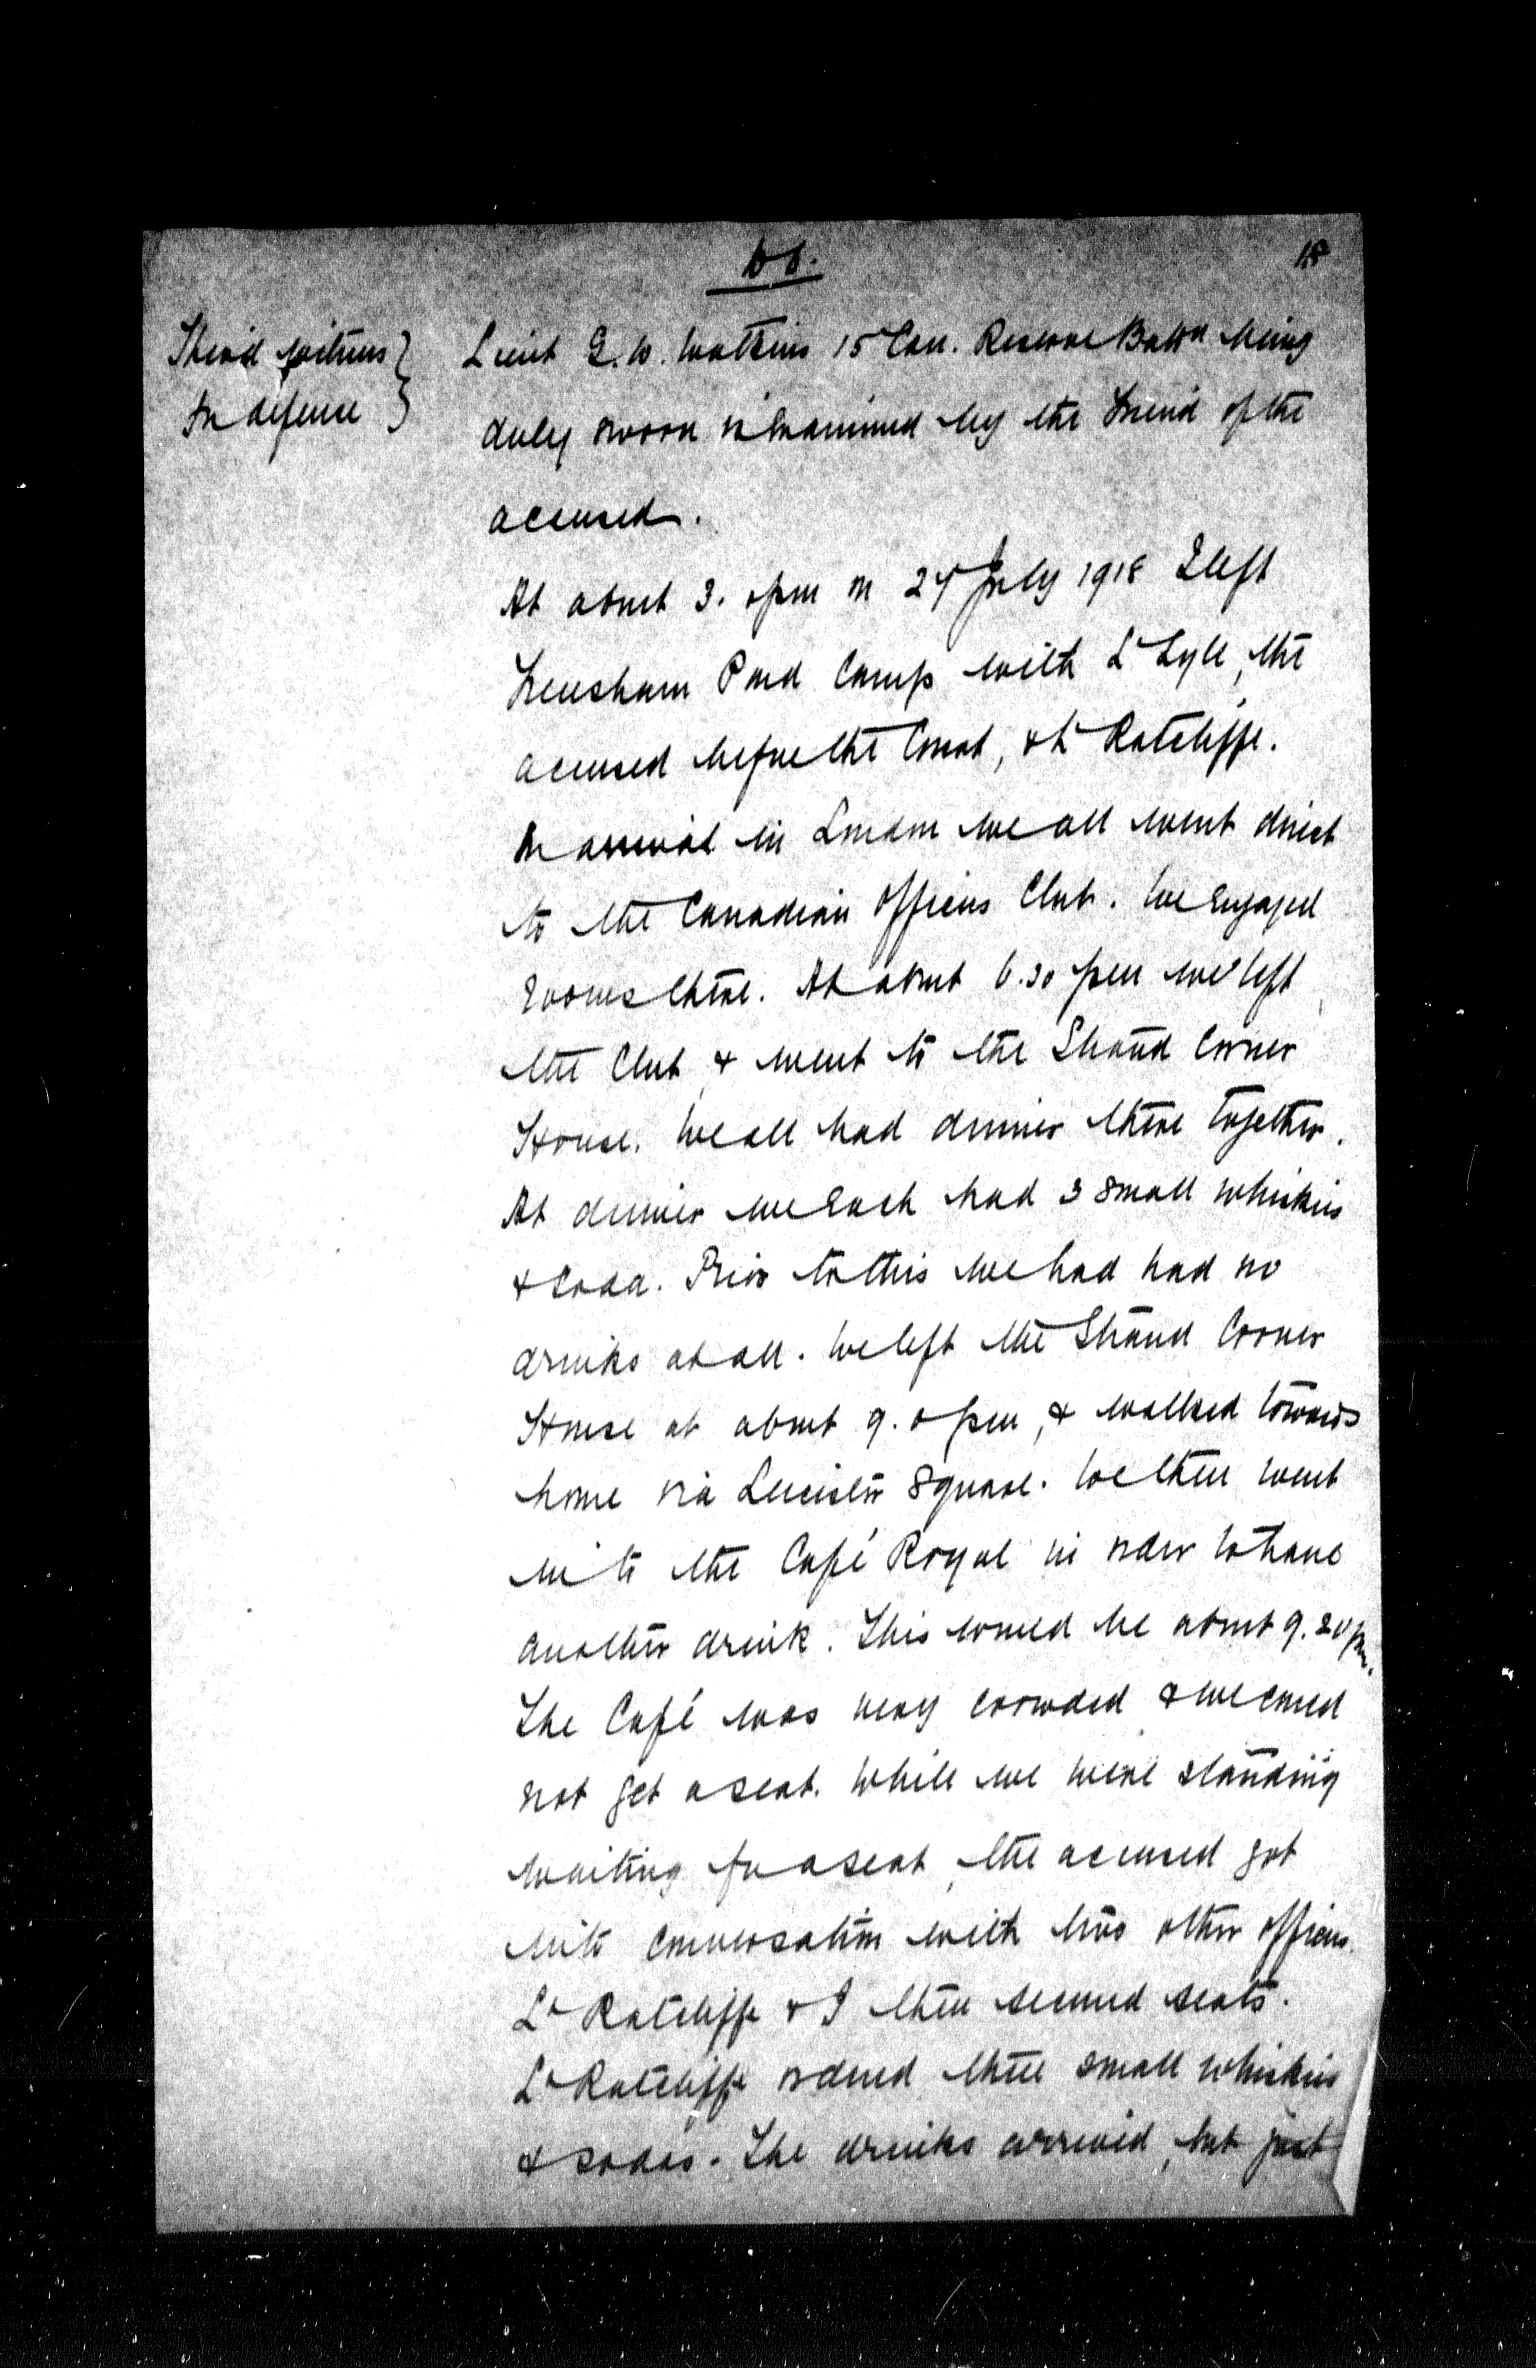 18
Third witness
for defence
Lieut G. W. Watkins 15 Can. Reserve Battn being
duly sworn is examined by the Friend of the
accused.
At about 3. opm on 27 July 1918 I left
Frensham Pond Camp with Lt Lyle, the
accused before the Court, & Lt Ratcliffe.
On arrival in London we all went direct
to the Canadian Officers Club. We engaged
rooms there. At about 6.30 pm we left
the Club & went to the Strand Corner
House. We all had dinner there together.
At dinner we each had 3 small whiskies
& soda. Prior to this we had had no
drinks at all. We left the Strand Corner
House at about 9. o pm, & walked towards
home via Leicester Square. We then went
into the Café Royal in order to have
another drink. This would be about 9.20 pm.
The Café was very crowded & we could
not get a seat. While we were standing
waiting for a seat, the accused got
into conversation with two other officers.
Lt Ratcliffe & I then secured seats.
Lt Ratcliffe ordered three small whiskies
& sodas. The drinks arrived, but just